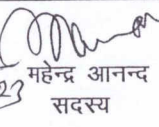 23
महेन्द्र आनन्द
सदस्य